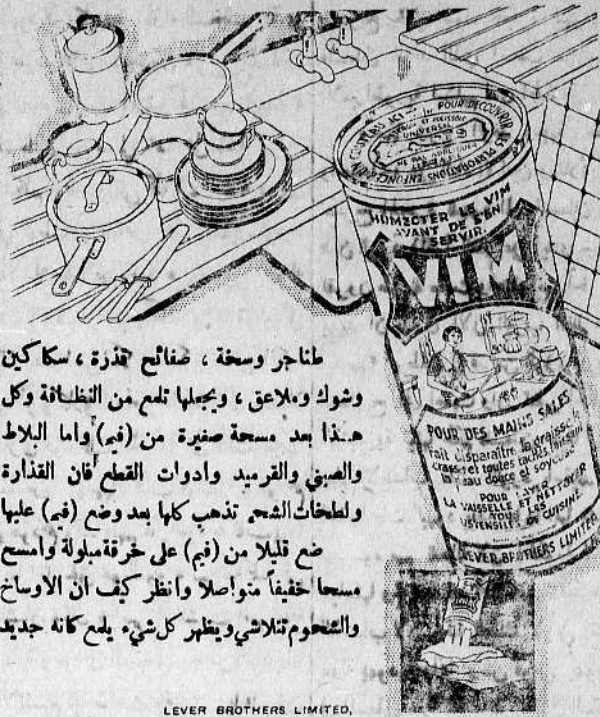 POUR DECOUVRIR LES PERFORATIONS ENFONCER
UNIVERSEL
HUMECTER LE VIM
AVANT DE S'EN
SERVIR.
VIM
POUR DES MAINS SALES
Fait disparaître la graisse, la
crasse et toutes taches, laissant
la peau douce et soyeuse
POUR LAVER
LA VAISSELLE ET NETTOYER
TOUS LES
USTENSILES DE CUISINE
LEVER BROTHERS LIMITED
طناجر وسخة ، صفائح قذرة ، سكاكين
وشوك وملاعق ، ويجعلها تلمع من النظافة وكل
هذا بعد مسحة صغيرة من (فيم) واما البلاط
والصيني والقرميد وادوات القطع فان القذارة
ولطخات الشحم تذهب كلها بعد وضع (فيم) عليها
ضع قليلا من (فيم) على خرقة مبلولة وامسح
مسحا خفيفاً متواصلا وانظر كيف ان الاوساخ
والشحوم تتلاشى ويظهر كل شيء يلمع كانه جديد
LEVER BROTHERS LIMITED,